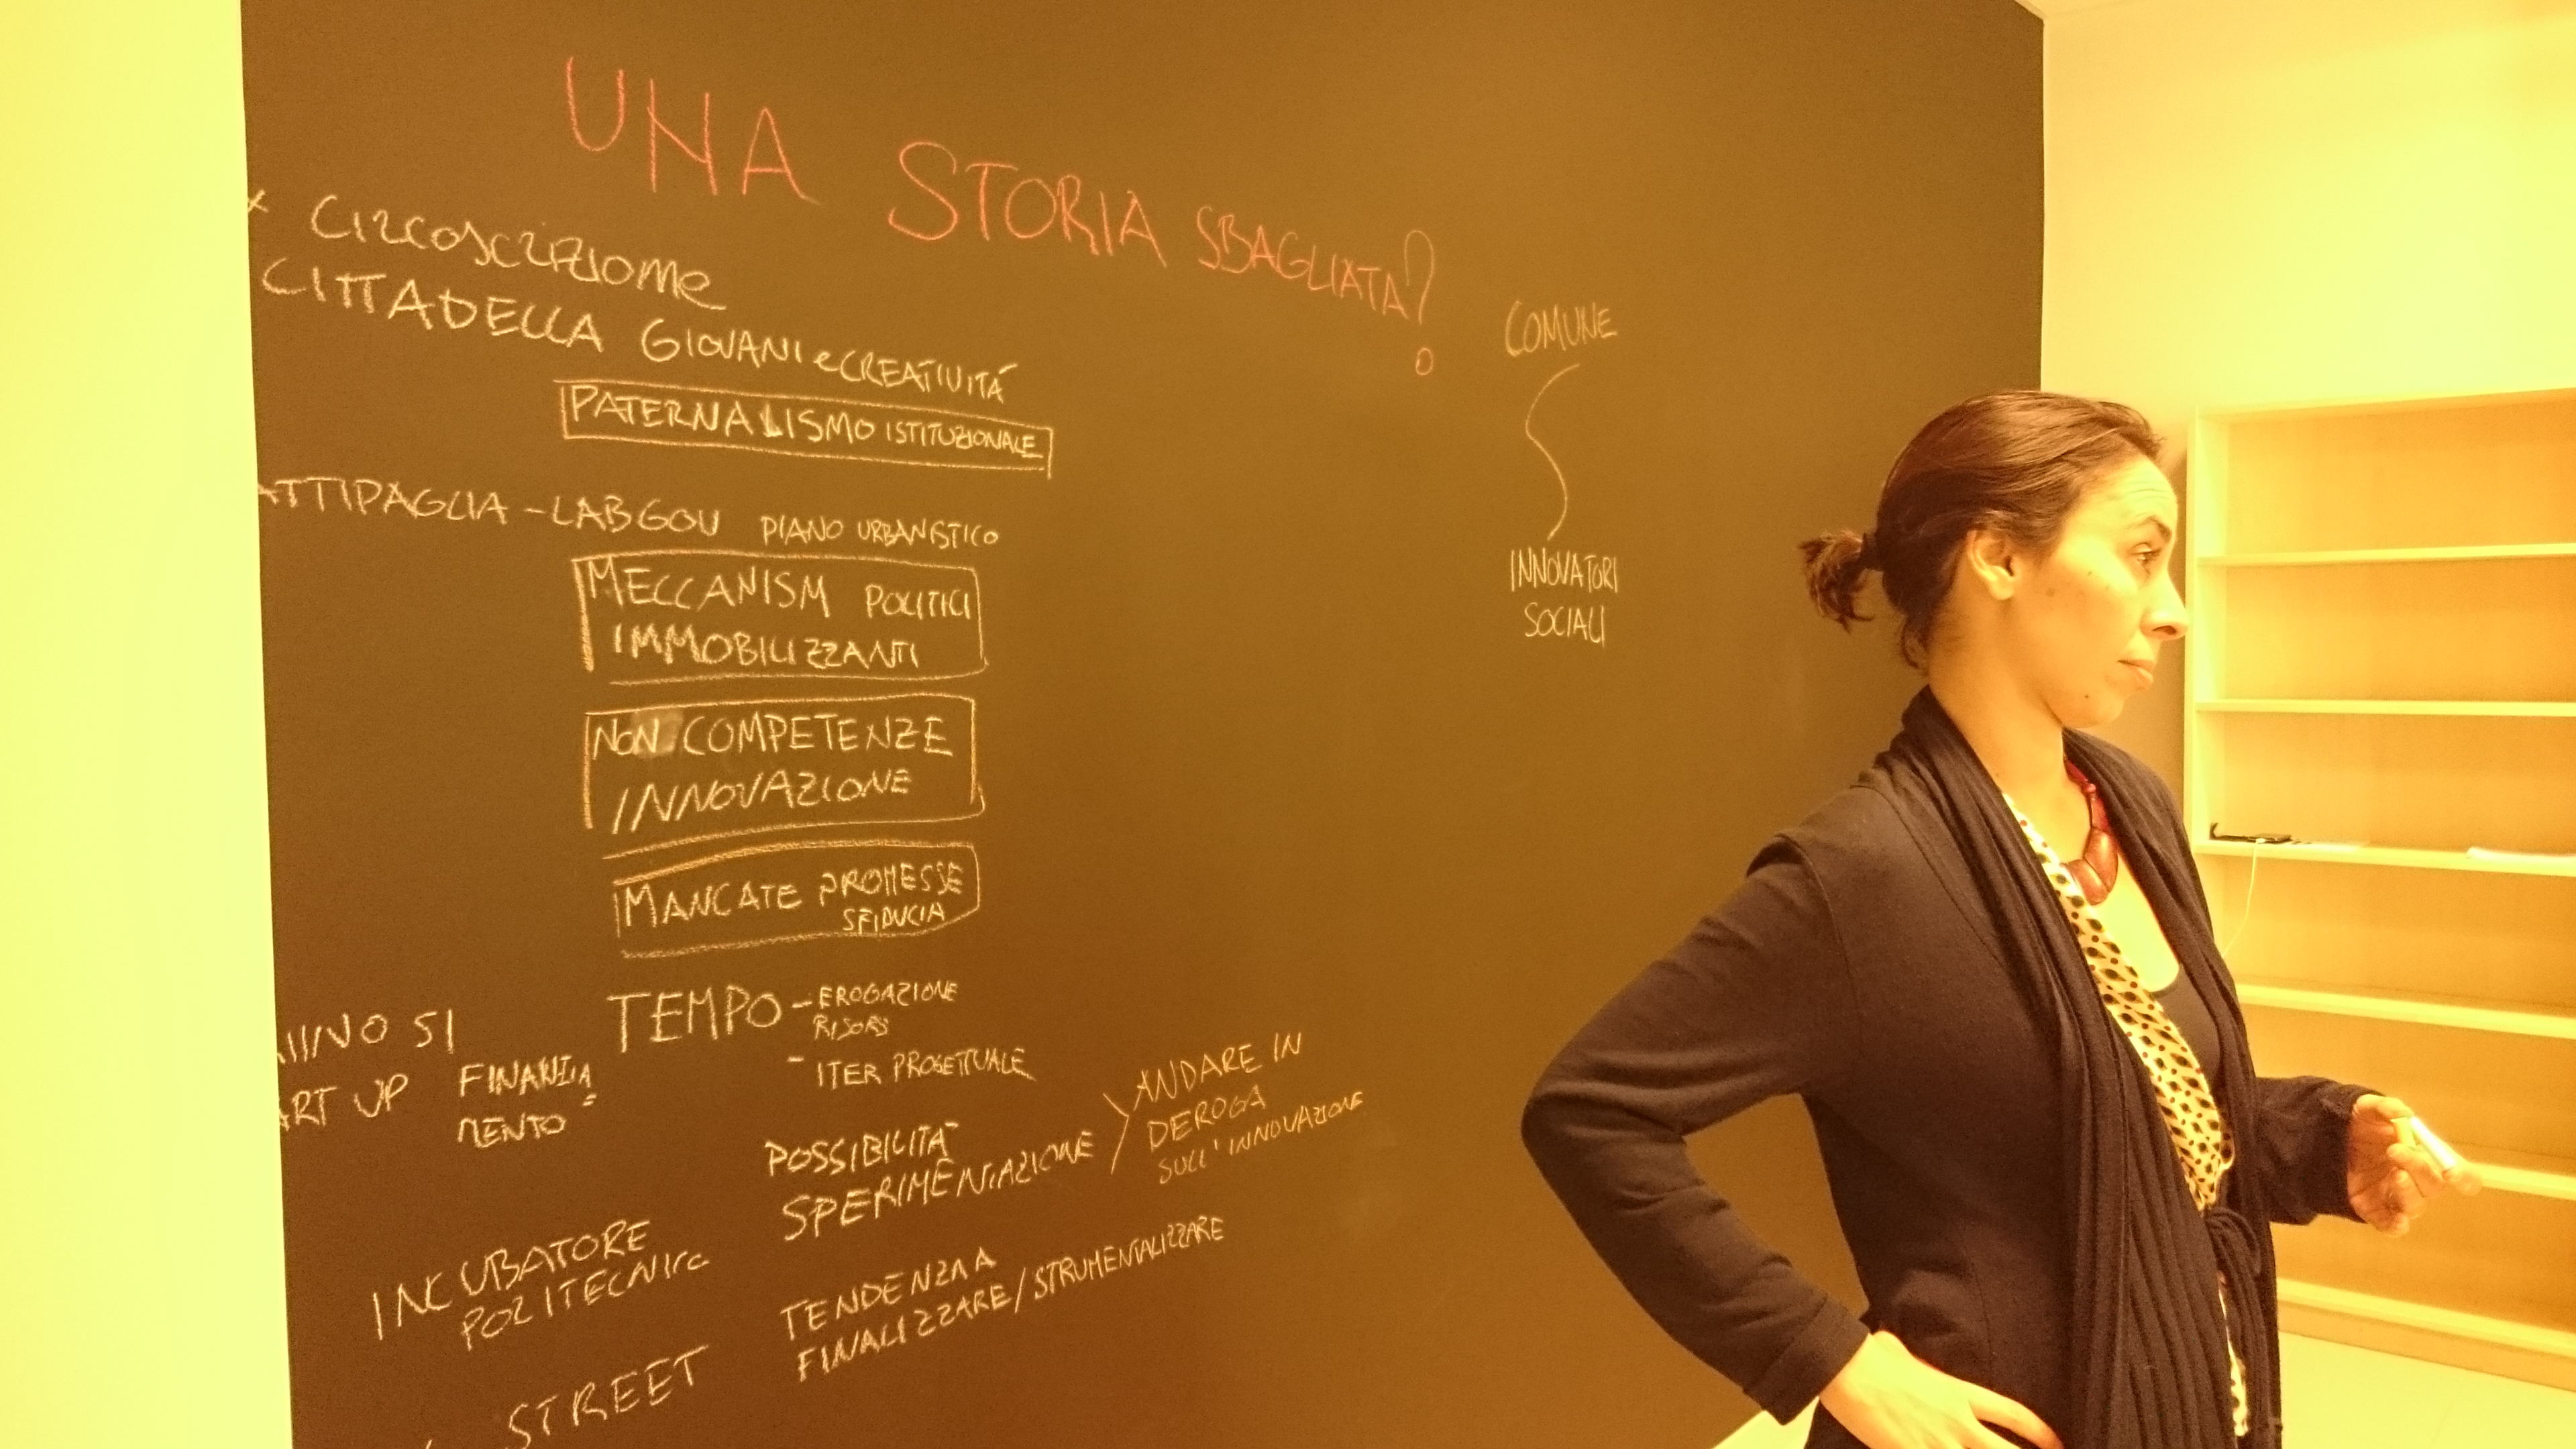 UNA STORIA SBAGLIATA?
CIRCOSCRIZIONE
CITTADELLA GIOVANI e CREATIVITÁ
PATERNALISMO ISTITUZIONALE
ATTIPAGLIA - LABGOV PIANO URBANISTICO
MECCANISM POLITICI
IMMOBILIZZANTI
NON COMPETENZE
INNOVAZIONE
MANCATE PROMESSE
SFIDUCIA
TEMPO - EROGAZIONE
RISORS
- ITER PROGETTUALE
SI
ART UP FINANZIA
MENTO
POSSIBILITÁ
SPERIMENTAZIONE
ANDARE IN
DEROGA
SULL'INNOVAZIONE
INCUBATORE
POLITECNICO
TENDENZA A
FINALIZZARE/STRUMENTALIZZARE
STREET
COMUNE
INNOVATORI
SOCIALI